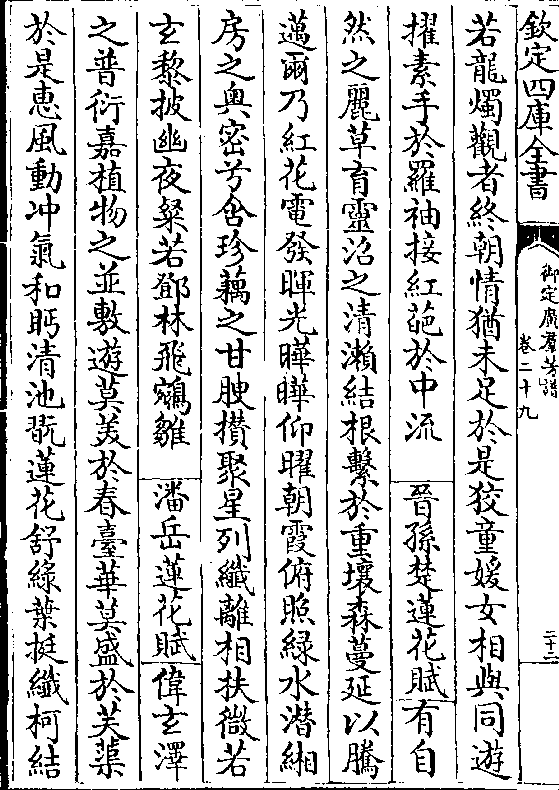 欽定四庫全書
御定廣羣芳譜
卷二十九
二十二
若龍燭觀者終朝情猶未足於是狡童媛女相與同遊
擢素手於羅袖接紅葩於中流 晉孫楚蓮花賦 有自
然之麗草育靈沼之清瀨結根繫於重壤森蔓延以騰
邁爾乃紅花電發暉光曄曄仰曜朝霞俯照綠水潛緗
房之奥密兮含珍藕之甘腴攅聚星列纖離相扶微若
玄黎披幽夜粲若鄧林飛鵷雛 潘岳蓮花賦 偉玄澤
之普衍嘉植物之並敷遊莫美於春臺華莫盛於芙蕖
於是惠風動冲氣和眄清池翫蓮花舒綠葉挺纖柯結